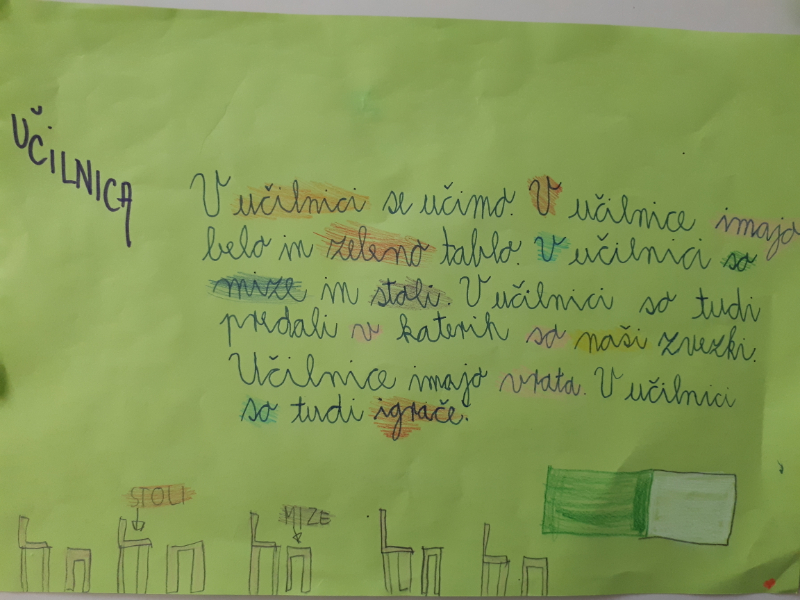 UČILNICA
V učilnici se učimo. V učilnice imajo
belo in zeleno tablo. V učilnici so
mize in stoli. V učilnici so tudi
predali v katerih so naši zvezki.
Učilnice imajo vrata. V učilnici
so tudi igrače.
STOLI
MIZE